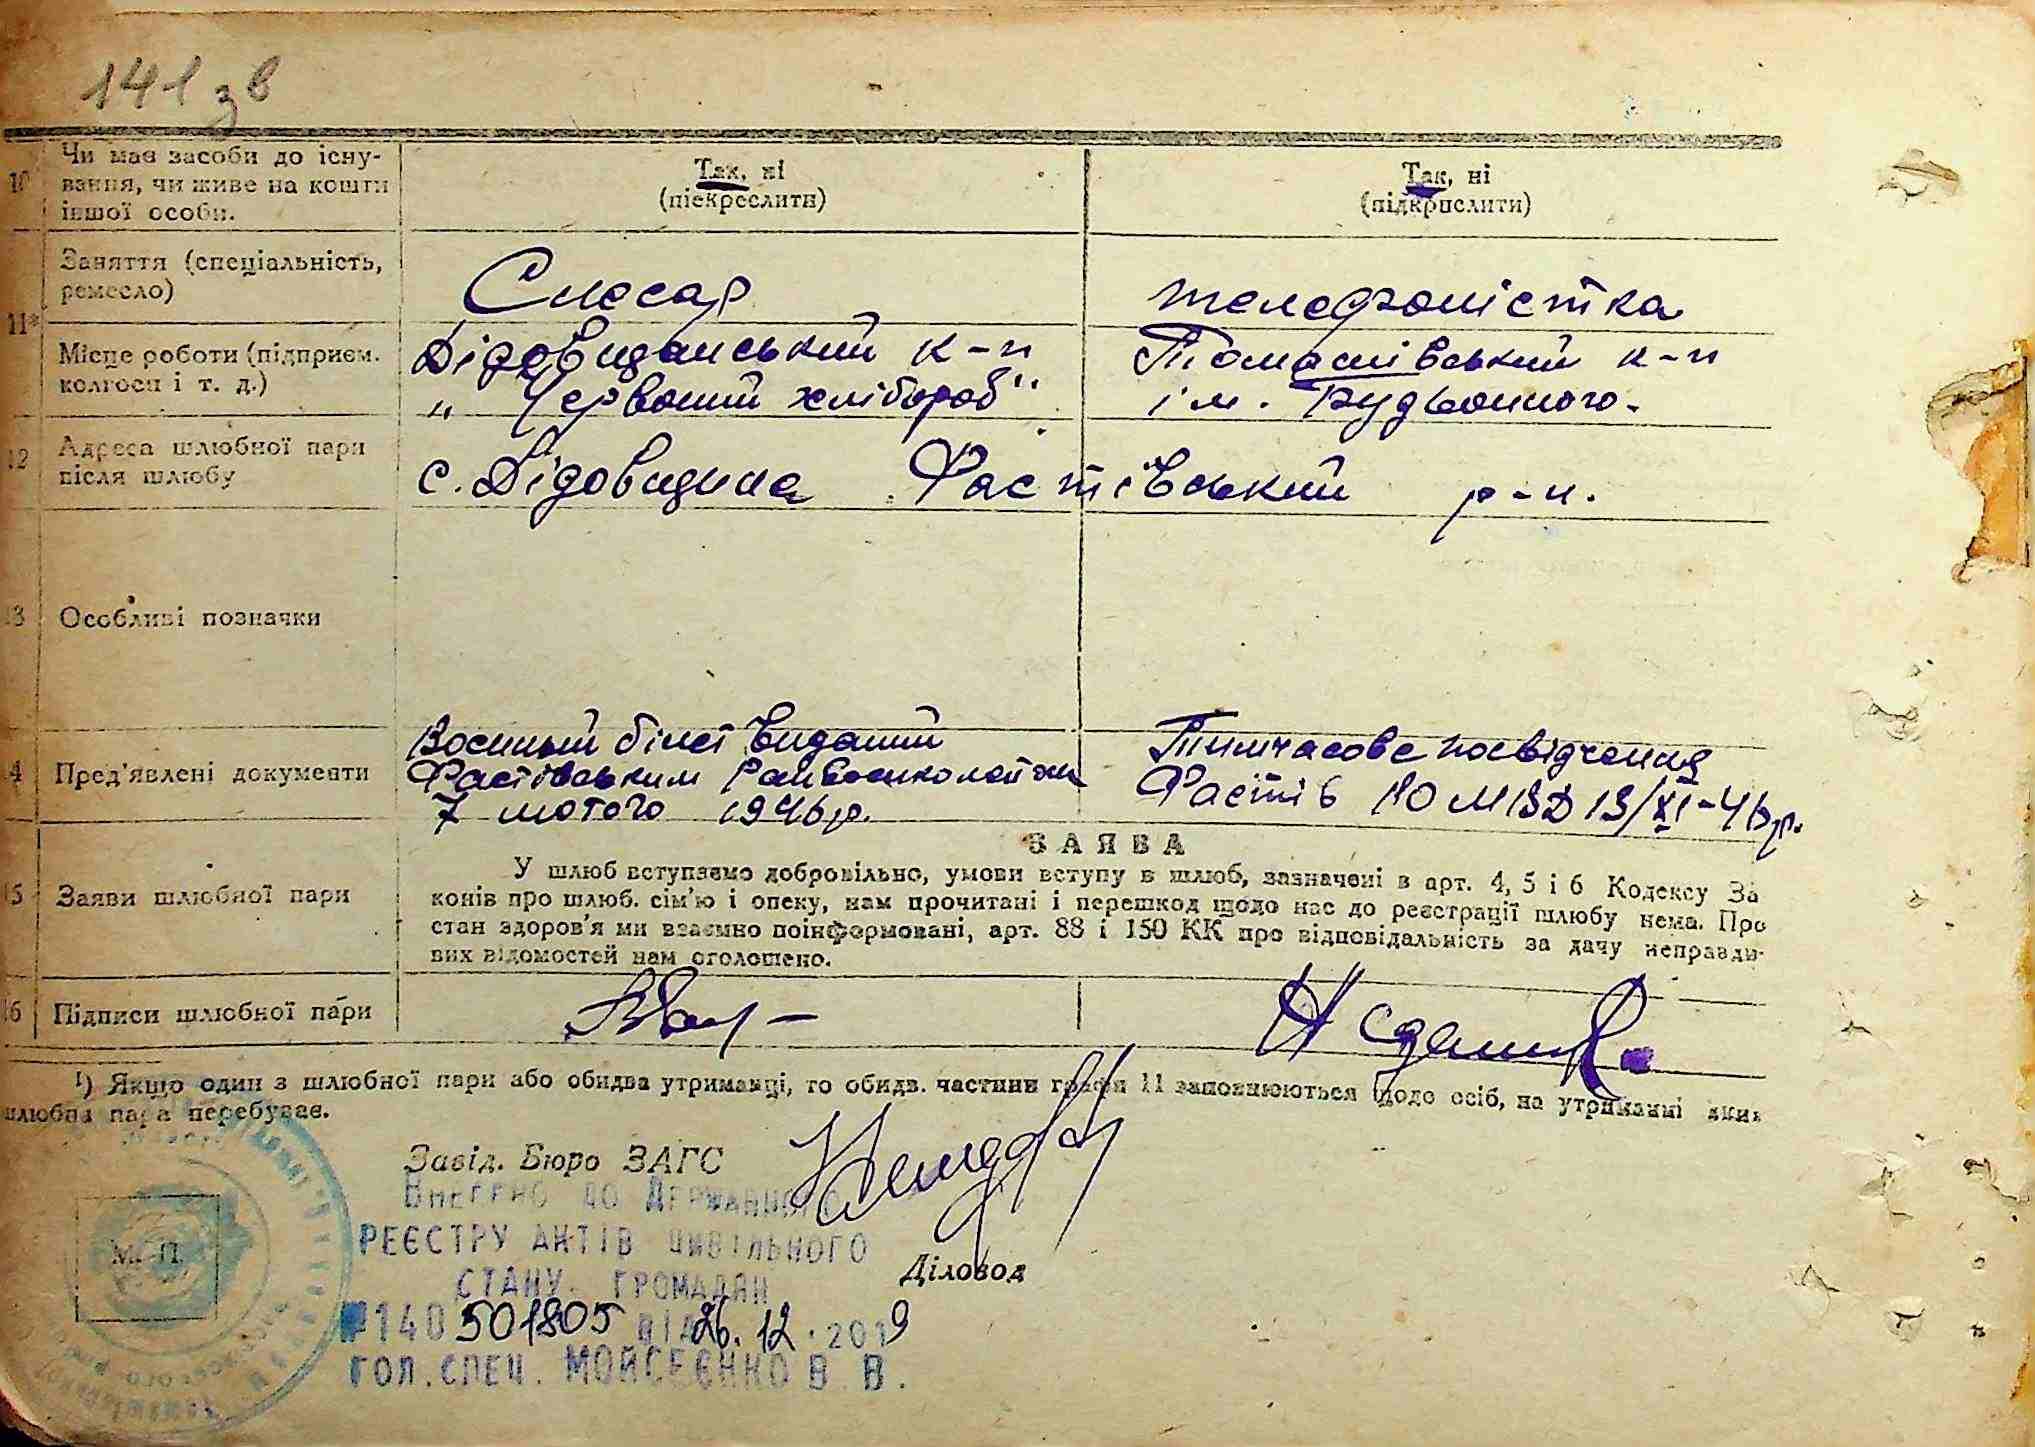 141 зв
10 Чи має засоби до існу-
вання, чи живе на кошти
іншої особи.
Так, ні
(підкреслити)
Так, ні
(підкрислити)
11* Заняття (спеціальність,
ремесло)
Слюсар
телефоністка
Місце роботи (підприєм.
колгосп і т. д.)
Дідовщанський к-п
„Червоний хлібороб"
Томашівський к-п
ім. Будьонного.
12 Адреса шлюбної пари
після шлюбу
с. Дідовщина Фастівський р-н.
13 Особливі позначки
14 Пред'явлені документи
Воєнный білєт Виданий
Фастівським Райвоєнкоматом
7 лютого 1946 р.
Тимчасове посвідчення
Фастів РО МВД 13/XI-46 р.
15 Заяви шлюбної пари
ЗАЯВА
У шлюб вступаємо добровільно, умови вступу в шлюб, зазначені в арт. 4, 5 і 6 Кодексу За
конів про шлюб. сім'ю і опеку, нам прочитані і перешкод щодо нас до реєстрації шлюбу нема. Про
стан здоров'я ми взаємно поінформовані, арт. 88 і 150 КК про відповідальність за дачу неправди-
вих відомостей нам оголошено.
16 Підписи шлюбної пари
¹) Якщо один з шлюбної пари або обидва утриманці, то обидв. частини графи 11 заповнюються щодо осіб, на утриманні яких
шлюбна пара перебуває.
Завід. Бюро ЗАГС
Внесено до Державного
реєстру актів цивільного
стану громадян
№140 501805 від 26.12.2019
гол. спец. Мойсеєнко В. В.
Діловод
М. П.